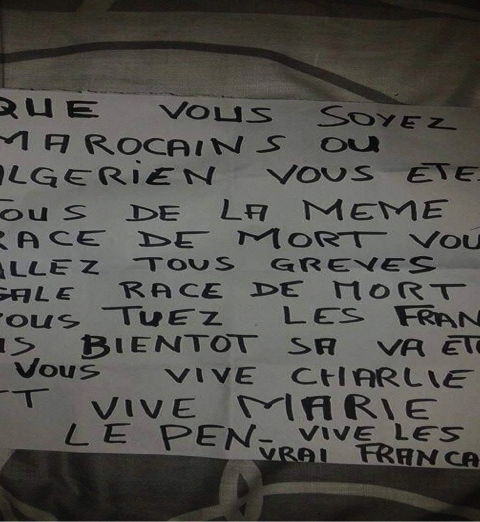 QUE VOUS SOYEZ
MAROCAINS OU
ALGERIEN VOUS ETES
TOUS DE LA MEME
RACE DE MORT VOU
ALLEZ TOUS GREVES
SALE RACE DE MORT
VOUS TUEZ LES FRAN
IS BIENTOT SA VA ETR
VOUS VIVE CHARLIE
ET VIVE MARIE
LE PEN- VIVE LES
VRAI FRANCA